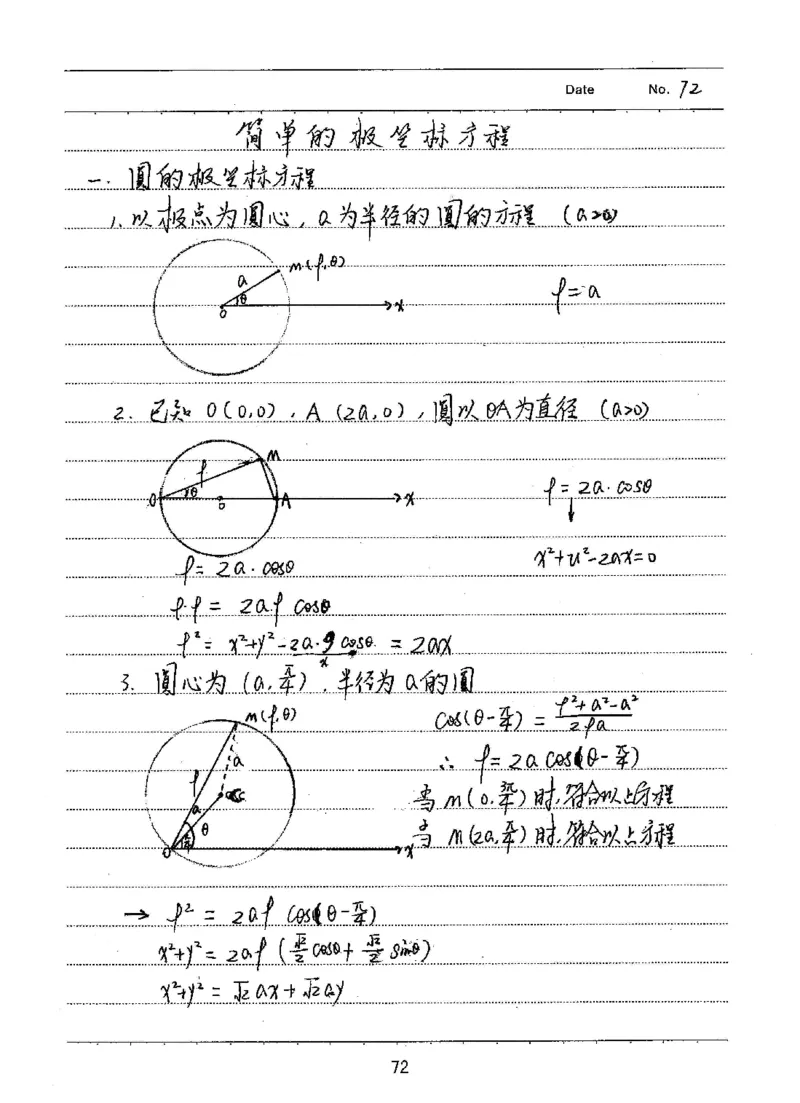 Date No. 72
简单的极坐标方程
一. 圆的极坐标方程
1. 以极点为圆心, a为半径的圆的方程 (a>0)
M(ρ,θ)
a
θ
O
x
ρ=a
2. 已知 O(0,0), A(2a,0), 圆以OA为直径 (a>0)
M
ρ
θ
O
A
x
ρ=2a·cosθ
↓
x²+y²-2ax=0
ρ=2a·cosθ
ρ·ρ=2a·ρ cosθ
ρ²=x²+y²-2a·ρ cosθ=2ax
x
3. 圆心为 (a, π/4), 半径为a的圆
M(ρ,θ)
a
ρ
a
θ
O
x
cos(θ-π/4) = (ρ²+a²-a²)/(2ρa)
∴ ρ=2a cos(θ-π/4)
当 M(0, 3π/4) 时, 符合以上方程
当 M(2a, π/4) 时, 符合以上方程
→ ρ² = 2aρ cos(θ-π/4)
x²+y² = 2aρ (√2/2 cosθ + √2/2 sinθ)
x²+y² = √2 ax + √2 ay
72